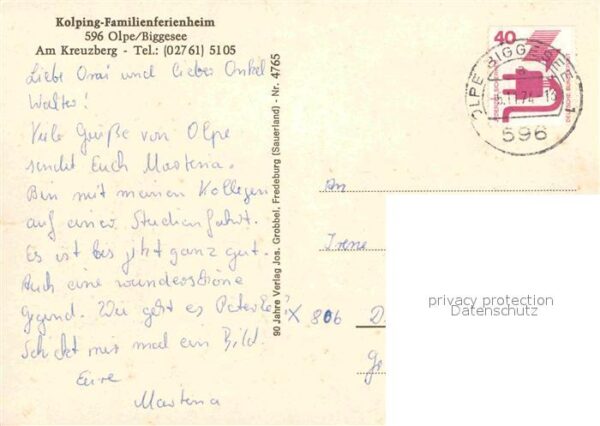 Kolping-Familienferienheim
596 Olpe/Biggesee
Am Kreuzberg - Tel.: (02761) 5105
Liebe Omi und lieber Onkel
Walter!
Viele Grüße von Olpe
sendet Euch Martina.
Bin mit meinen Kollegen
auf einer Studienfahrt.
Es ist bis jetzt ganz gut.
Auch eine wunderschöne
Gegend. Wie geht es
Schickt mir mal ein Bild.
Eure
Martina
90 Jahre Verlag Jos. Grobbel, Fredeburg (Sauerland) - Nr. 4765
40
DEUTSCHE BUNDESPOST
OLPE BIGGESEE 1
596
An
Irene
X 806 D
privacy protection
Datenschutz